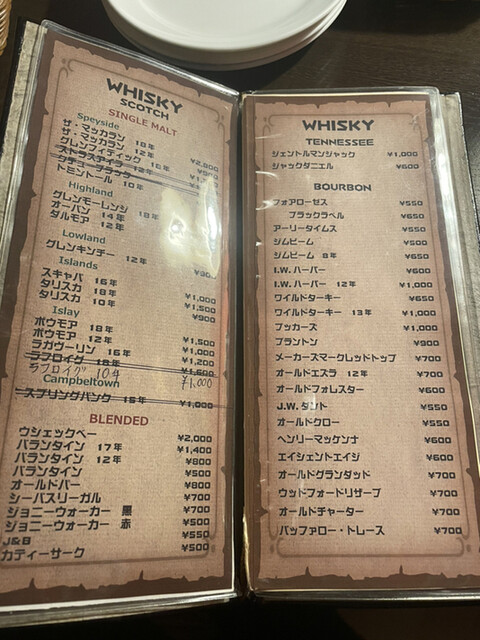 WHISKY
SCOTCH
SINGLE MALT
Speyside
ザ・マッカラン 18年
ザ・マッカラン 12年 ¥2,800
グレンフィディック 15年
ストラスアイラ 12年
クデューブラック
トミントール 10年
Highland
グレンモーレンジ 18年
オーバン 14年
ダルモア 12年
Lowland
グレンキンチー 12年 ¥900
Islands
スキャパ 16年
タリスカ 18年 ¥1,000
タリスカ 10年 ¥1,500
¥900
Islay
ボウモア 18年
ボウモア 12年 ¥1,500
ラガヴーリン 16年 ¥1,000
ラフロイグ 18年 ¥1,200
ラフロイグ 10年 ¥1,600
Campbeltown ¥1,000
スプリングバンク 15年 ¥1,000
BLENDED
ウシェックベー ¥2,000
バランタイン 17年 ¥1,400
バランタイン 12年 ¥800
バランタイン ¥500
オールドパー ¥800
シーバスリーガル ¥700
ジョニーウォーカー 黒 ¥700
ジョニーウォーカー 赤 ¥500
J&B ¥550
カティーサーク ¥500
WHISKY
TENNESSEE
ジェントルマンジャック ¥1,000
ジャックダニエル ¥600
BOURBON
フォアローゼス ¥550
ブラックラベル ¥650
アーリータイムス ¥550
ジムビーム ¥500
ジムビーム 8年 ¥650
I.W.ハーパー ¥600
I.W.ハーパー 12年 ¥1,000
ワイルドターキー ¥650
ワイルドターキー 13年 ¥1,000
ブッカーズ ¥1,000
ブラントン ¥900
メーカーズマークレッドトップ ¥700
オールドエズラ 12年 ¥700
オールドフォレスター ¥600
J.W.ダント ¥550
オールドクロー ¥550
ヘンリーマッケンナ ¥600
エイシェントエイジ ¥600
オールドグランダッド ¥700
ウッドフォードリザーブ ¥700
オールドチャーター ¥700
バッファロー・トレース ¥700